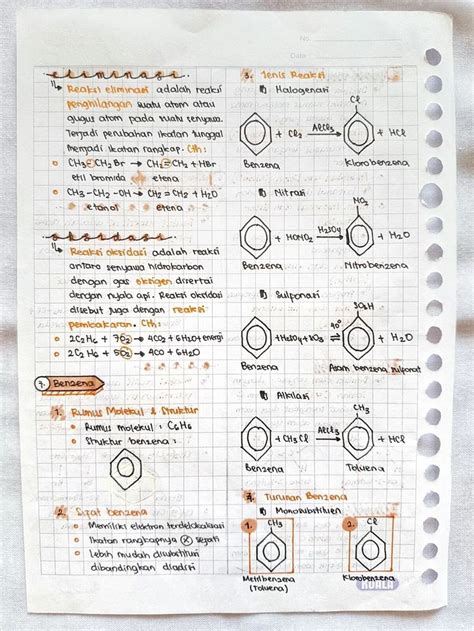 No
Date
eliminasi
↳ Reaksi eliminasi adalah reaksi
penghilangan suatu atom atau
gugus atom pada suatu senyawa.
Terjadi perubahan ikatan tunggal
menjadi ikatan rangkap. Cth:
○ CH3-CH2 Br → CH2=CH2 + HBr
etil bromida etena
○ CH3-CH2-OH → CH2=CH2 + H2O
etanol etena
oksidasi
↳ Reaksi oksidasi adalah reaksi
antara senyawa hidrokarbon
dengan gas oksigen disertai
dengan nyala api. Reaksi oksidasi
disebut juga dengan reaksi
pembakaran. Cth:
○ 2C2H6 + 7O2 → 4CO2 + 6H2O + energi
○ 2C2H6 + 5O2 → 4CO + 6H2O
7. Benzena
1. Rumus Molekul & Struktur
• Rumus molekul : C6H6
• Struktur benzena :
2. Sifat benzena
• Memiliki elektron terdelokalisasi
• Ikatan rangkapnya ⓧ sejati
• Lebih mudah disubstitusi
dibandingkan diadisi
3. Jenis Reaksi
Halogenasi
Cl
+ Cl2 AlCl3 → + HCl
Benzena Klorobenzena
Nitrasi
NO2
+ HONO2 H2SO4 → + H2O
Benzena Nitrobenzena
Sulfonasi
SO3H
+ H2SO4 + SO3 40° + H2O
Benzena Asam benzena sulfonat
Alkilasi
CH3
+ CH3Cl AlCl3 → + HCl
Benzena Toluena
4. Turunan Benzena
Monosubstituen
1. CH3 2. Cl
Metilbenzena Klorobenzena
(Toluena)